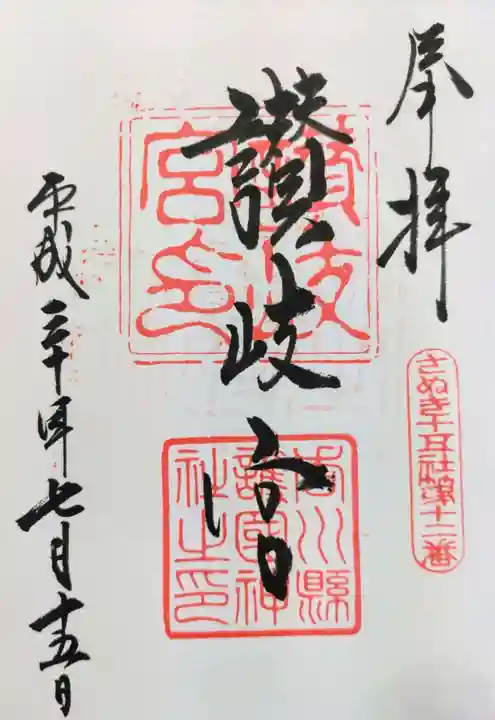 奉拝
さぬき十五社第十二番
讃岐宮
讃岐宮印
香川縣護國神社之印
平成三十年七月十五日